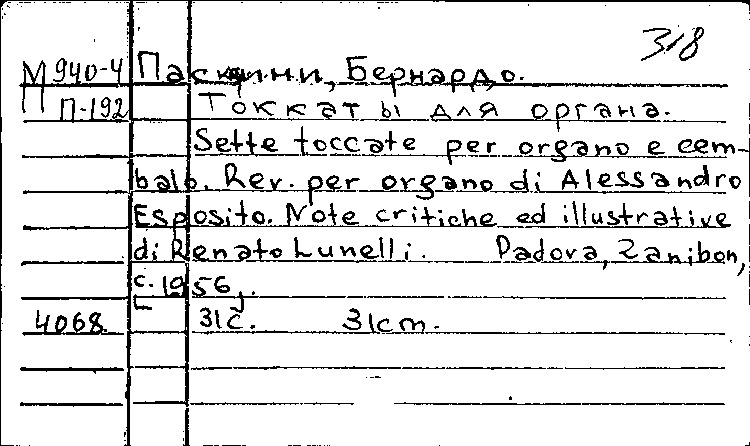 318
М 940-4 Пасквини, Бернардо.
П П-192 Токкаты для органа.
Sette toccate per organo e cem-
balo. Rev. per organo di Alessandro
Esposito. Note critiche ed illustrative
di Renato Lunelli. Padova, Zanibon,
[c. 1956].
4068 31с. 31cm.